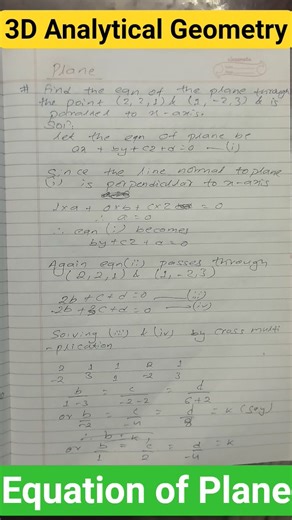 3D Analytical Geometry
Plane
# Find the eqn of the plane through
the point (2,2,1) & (1,-2,3) & is
parallel to x-axis.
Soln:
Let the eqn of plane be
ax + by + cz + d = 0 — (i)
Since the line normal to plane
(i) is perpendicular to x-axis
1×a + 0×b + c×0 = 0
∴ a = 0
∴ eqn (i) becomes
by + cz + d = 0
Again eqn (ii) passes through
(2,2,1) & (1,-2,3)
2b + c + d = 0 — (iii)
-2b + 3c + d = 0 — (iv)
Solving (iii) & (iv) by cross multi
-plication
2 1 1 2 1
-2 3 1 -2 3
b/1-3 = c/-2-2 = d/6+2
or b/-2 = c/-4 = d/8 = k (say)
∴ b = k,
or b/1 = c/2 = d/-4 = k
Equation of Plane